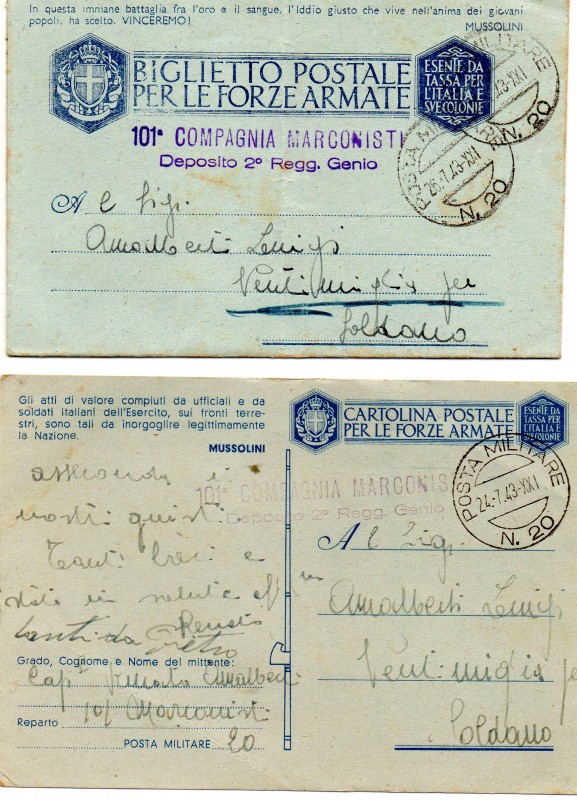 In questa immane battaglia fra l'oro e il sangue, l'Iddio giusto che vive nell'anima dei giovani
popoli, ha scelto. VINCEREMO!
MUSSOLINI
BIGLIETTO POSTALE
PER LE FORZE ARMATE
ESENTE DA
TASSA PER
L'ITALIA E
SVE COLONIE
101ª COMPAGNIA MARCONISTI
Deposito 2º Regg. Genio
POSTA MILITARE
26.7.43-XXI
N. 20
MILITARE
43-XXI
N. 20
A l Sig.
Amalberti Luigi
Ventimiglia per
Soldano
Gli atti di valore compiuti da ufficiali e da
soldati italiani dell'Esercito, sui fronti terre-
stri, sono tali da inorgoglire legittimamente
la Nazione.
MUSSOLINI
CARTOLINA POSTALE
PER LE FORZE ARMATE
ESENTE DA
TASSA PER
L'ITALIA E
SVE COLONIE
101ª COMPAGNIA MARCONIS
Deposito 2º Regg. Genio
POSTA MILITARE
24.7.43-XXI
N. 20
i
nostri
Tanti baci e
in salute
Renato
Pietro
Grado, Cognome e Nome del mittente:
Amalberti
Reparto 101 Marconisti
POSTA MILITARE 20
A l Sig.
Amalberti Luigi
Ventimiglia pe
Soldano